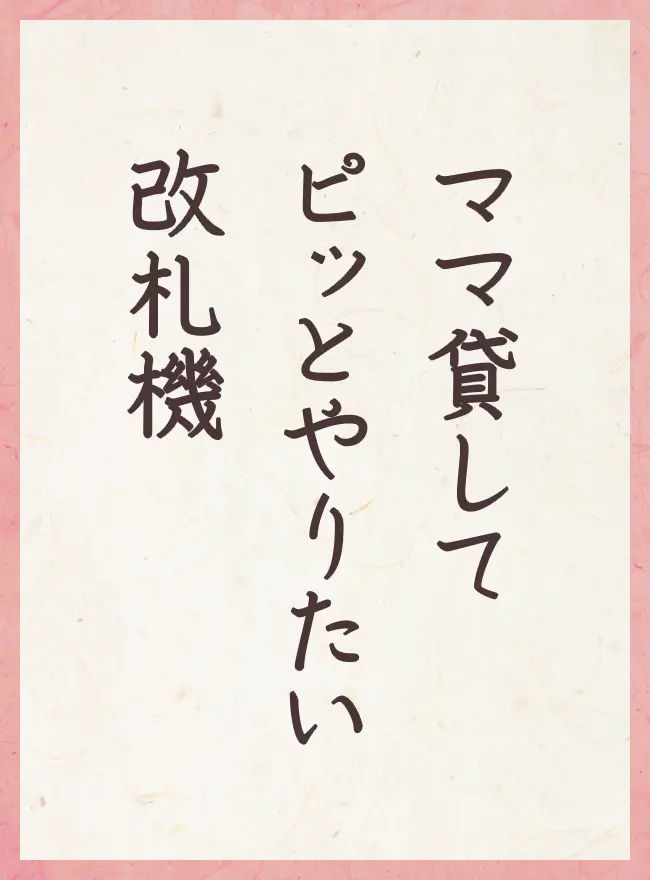 ママ貸して
ピッとやりたい
改札機